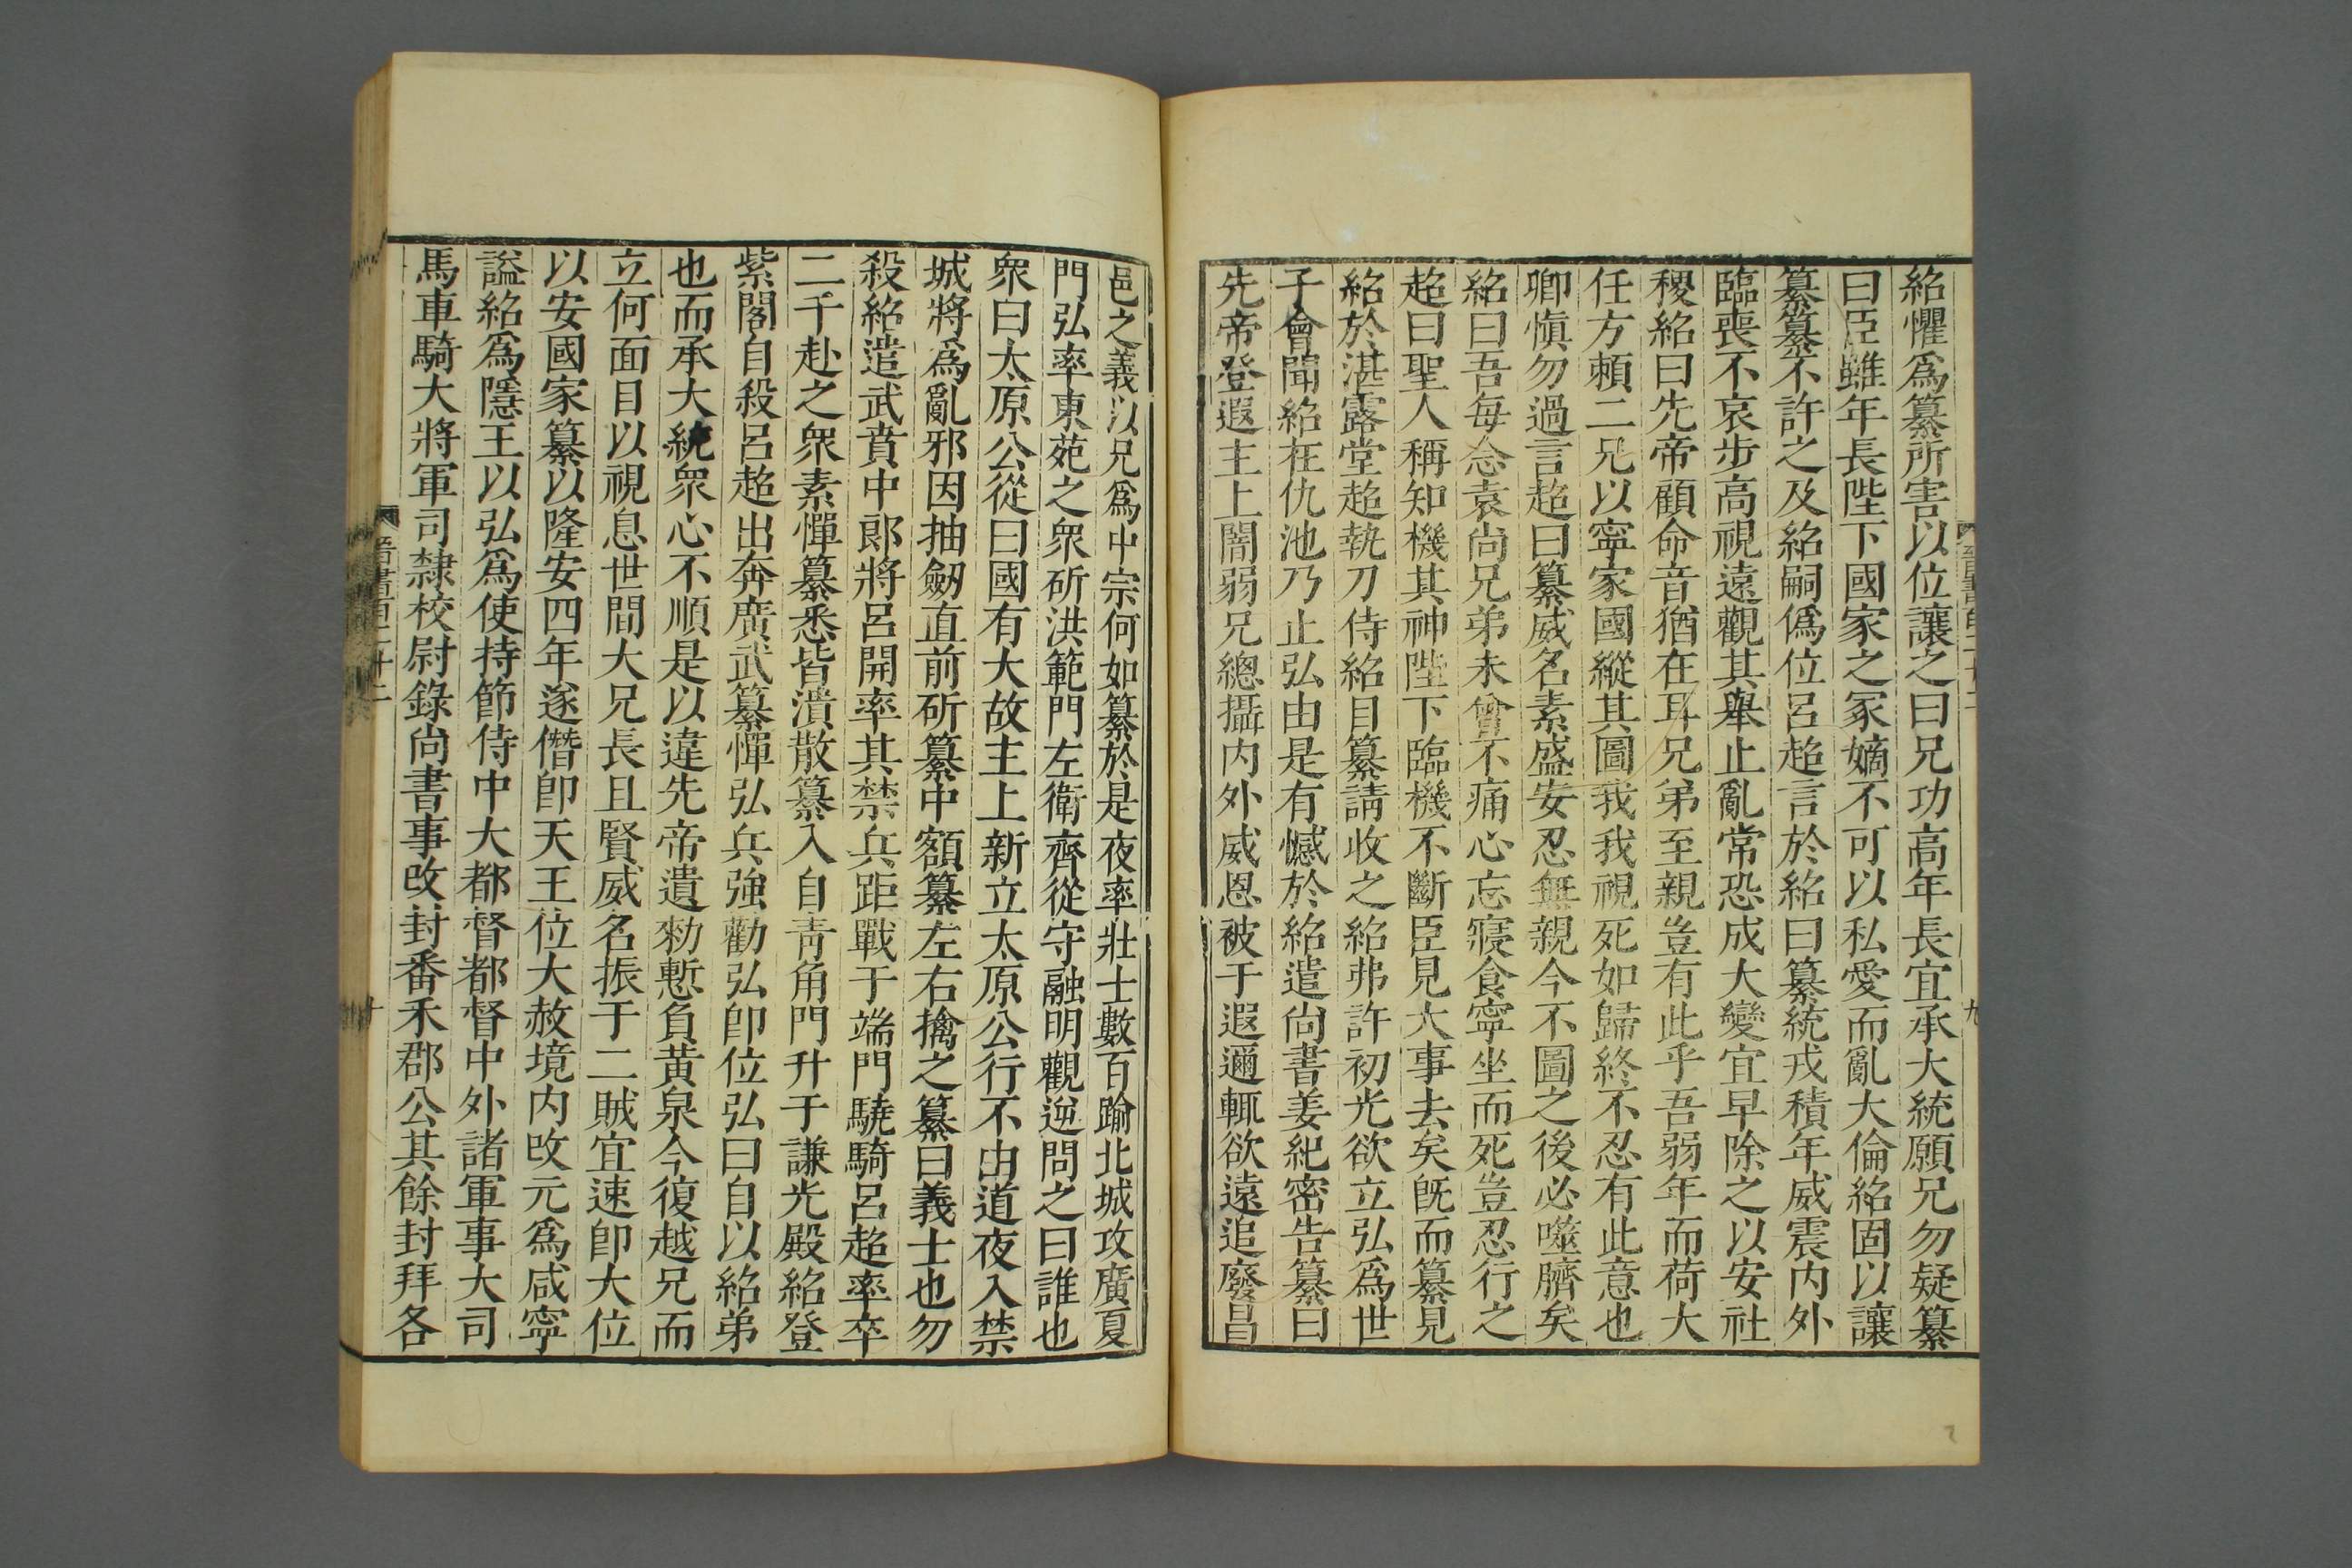 紹懼爲纂所害以位讓之曰兄功高年長宜承大統願兄勿疑纂
曰臣雖年長陛下國家之冢嫡不可以私愛而亂大倫紹固以讓
纂纂不許之及紹嗣僞位呂超言於紹曰纂統戎積年威震內外
臨喪不哀步高視遠觀其舉止亂常恐成大變宜早除之以安社
稷紹曰先帝顧命音猶在耳兄弟至親豈有此乎吾弱年而荷大
任方賴二兄以寧家國縱其圖我我視死如歸終不忍有此意也
卿愼勿過言超曰纂威名素盛安忍無親今不圖之後必噬臍矣
紹曰吾每念袁尚兄弟未曾不痛心忘寢食寧坐而死豈忍行之
超曰聖人稱知機其神陛下臨機不斷臣見大事去矣旣而纂見
紹於湛露堂超執刀侍紹目纂請收之紹弗許初光欲立弘爲世
子會聞紹在仇池乃止弘由是有憾於紹遣尚書姜紀密告纂曰
先帝登遐主上闇弱兄總攝內外威恩被于遐邇輒欲遠追廢昌
九
邑之義以兄爲中宗何如纂於是夜率壯士數百踰北城攻廣夏
門弘率東苑之衆斫洪範門左衞齊從守融明觀逆問之曰誰也
衆曰太原公從曰國有大故主上新立太原公行不由道夜入禁
城將爲亂邪因抽劒直前斫纂中額纂左右擒之纂曰義士也勿
殺紹遣武賁中郞將呂開率其禁兵距戰于端門驍騎呂超率卒
二千赴之衆素憚纂悉皆潰散纂入自青角門升于謙光殿紹登
紫閣自殺呂超出奔廣武纂憚弘兵強勸弘卽位弘曰自以紹弟
也而承大統衆心不順是以違先帝遺勑慙負黃泉今復越兄而
立何面目以視息世間大兄長且賢威名振于二賊宜速卽大位
以安國家纂以隆安四年遂僭卽天王位大赦境內改元爲咸寧
謚紹爲隱王以弘爲使持節侍中大都督都督中外諸軍事大司
馬車騎大將軍司隸校尉錄尚書事改封番禾郡公其餘封拜各
晉書百二十二
十